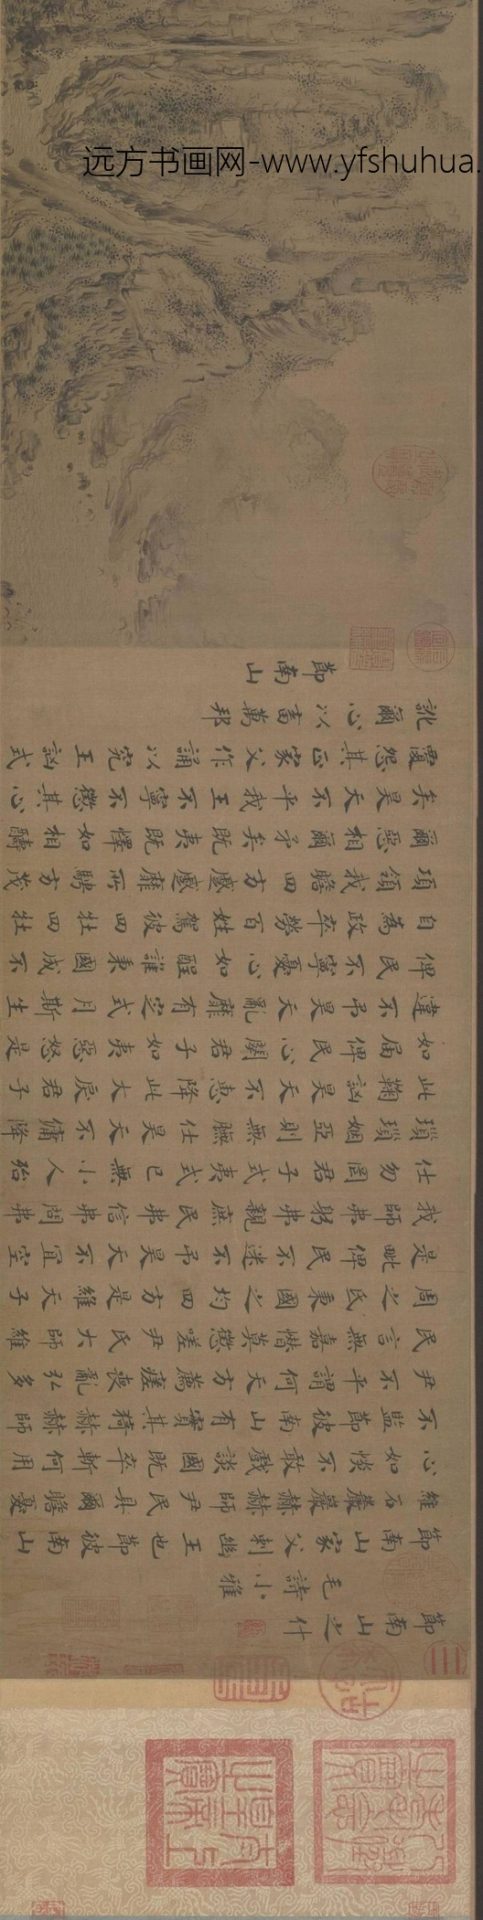 节南山之什
毛詩小雅
節南山家父刺幽王也節彼南山
維石巖巖赫赫師尹民具爾瞻憂
心如惔不敢戲談國既卒斬何用
不監節彼南山有實其猗赫赫師
尹不平謂何天方薦瘥喪亂弘多
民言無嘉憯莫懲嗟尹氏大師維
周之氐秉國之均四方是維天子
是毗俾民不迷不弔昊天不宜空
我師弗躬弗親庶民弗信弗問弗
仕勿罔君子式夷式已無小人殆
瑣瑣姻亞則無膴仕昊天不傭降
此鞠訩昊天不惠降此大戾君子
如屆俾民心闋君子如夷惡怒是
違不弔昊天亂靡有定式月斯生
俾民不寧憂心如酲誰秉國成不
自為政卒勞百姓駕彼四牡四牡
項領我瞻四方蹙蹙靡所騁方茂
爾惡相爾矛矣既夷既懌如相醻
矣昊天不平我王不寧不懲其心
覆怨其正家父作誦以究王訩式
訛爾心以畜萬邦
節南山
远方书画网-www.yfshuhua.